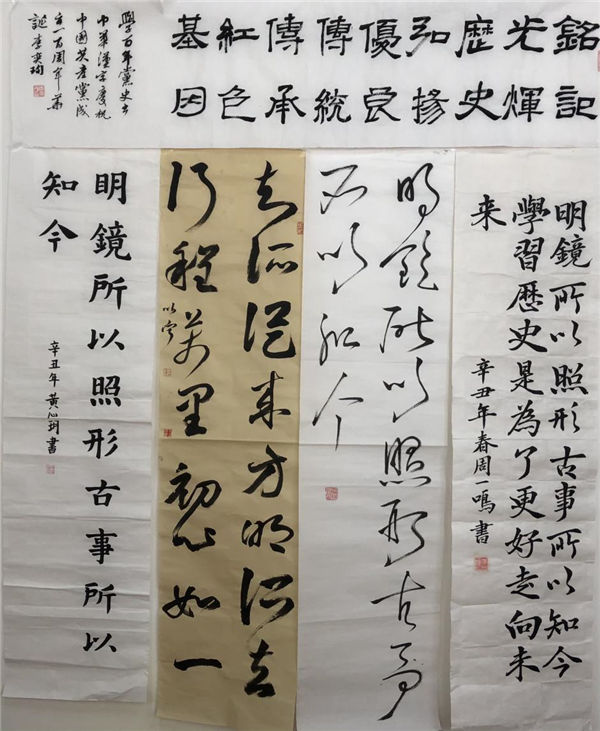 銘記
光煇
歷史
弘揚
優良
傳統
傳承
紅色
基因
學百年黨史書
中華漢字慶祝
中國共產黨成
立一百周年華
誕 李奕珣
明鏡所以照形古事所以知今
學習歷史是為了更好走向未
来
辛丑年春周一鳴書
明鏡所以照形古事
所以知今
知所從来方明所去
行程万里初心如一
以寧
明鏡所以照形古事所以
知今
辛丑年黃心玥書